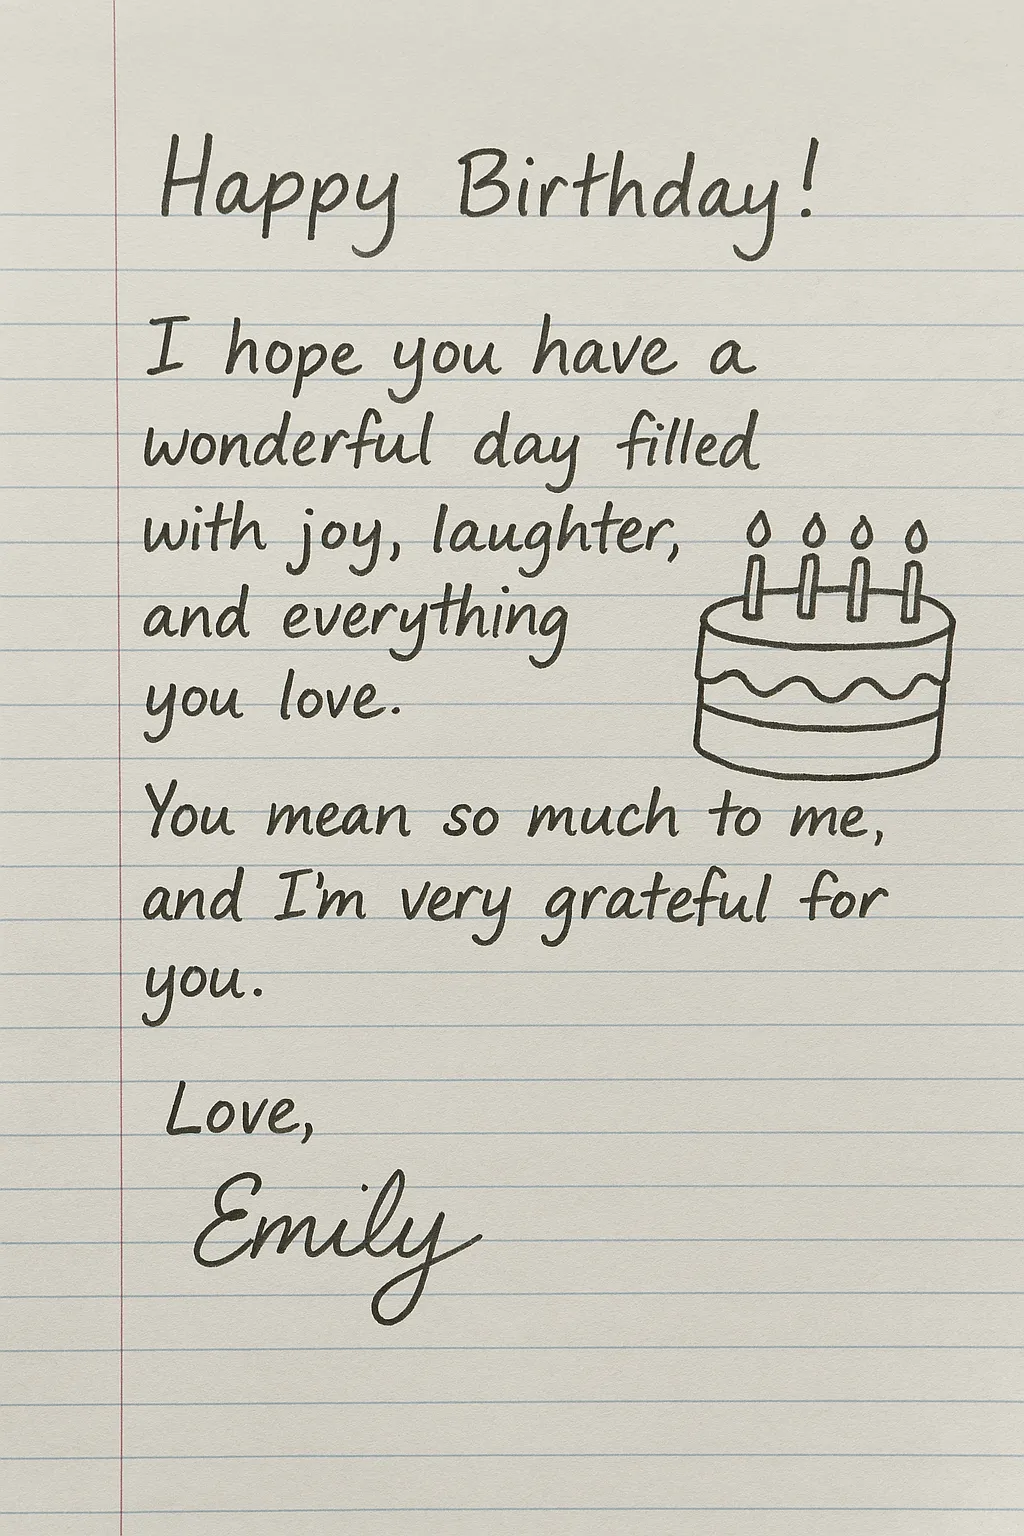 Happy Birthday!
I hope you have a
wonderful day filled
with joy, laughter,
and everything
you love.
You mean so much to me,
and I'm very grateful for
you.
Love,
Emily